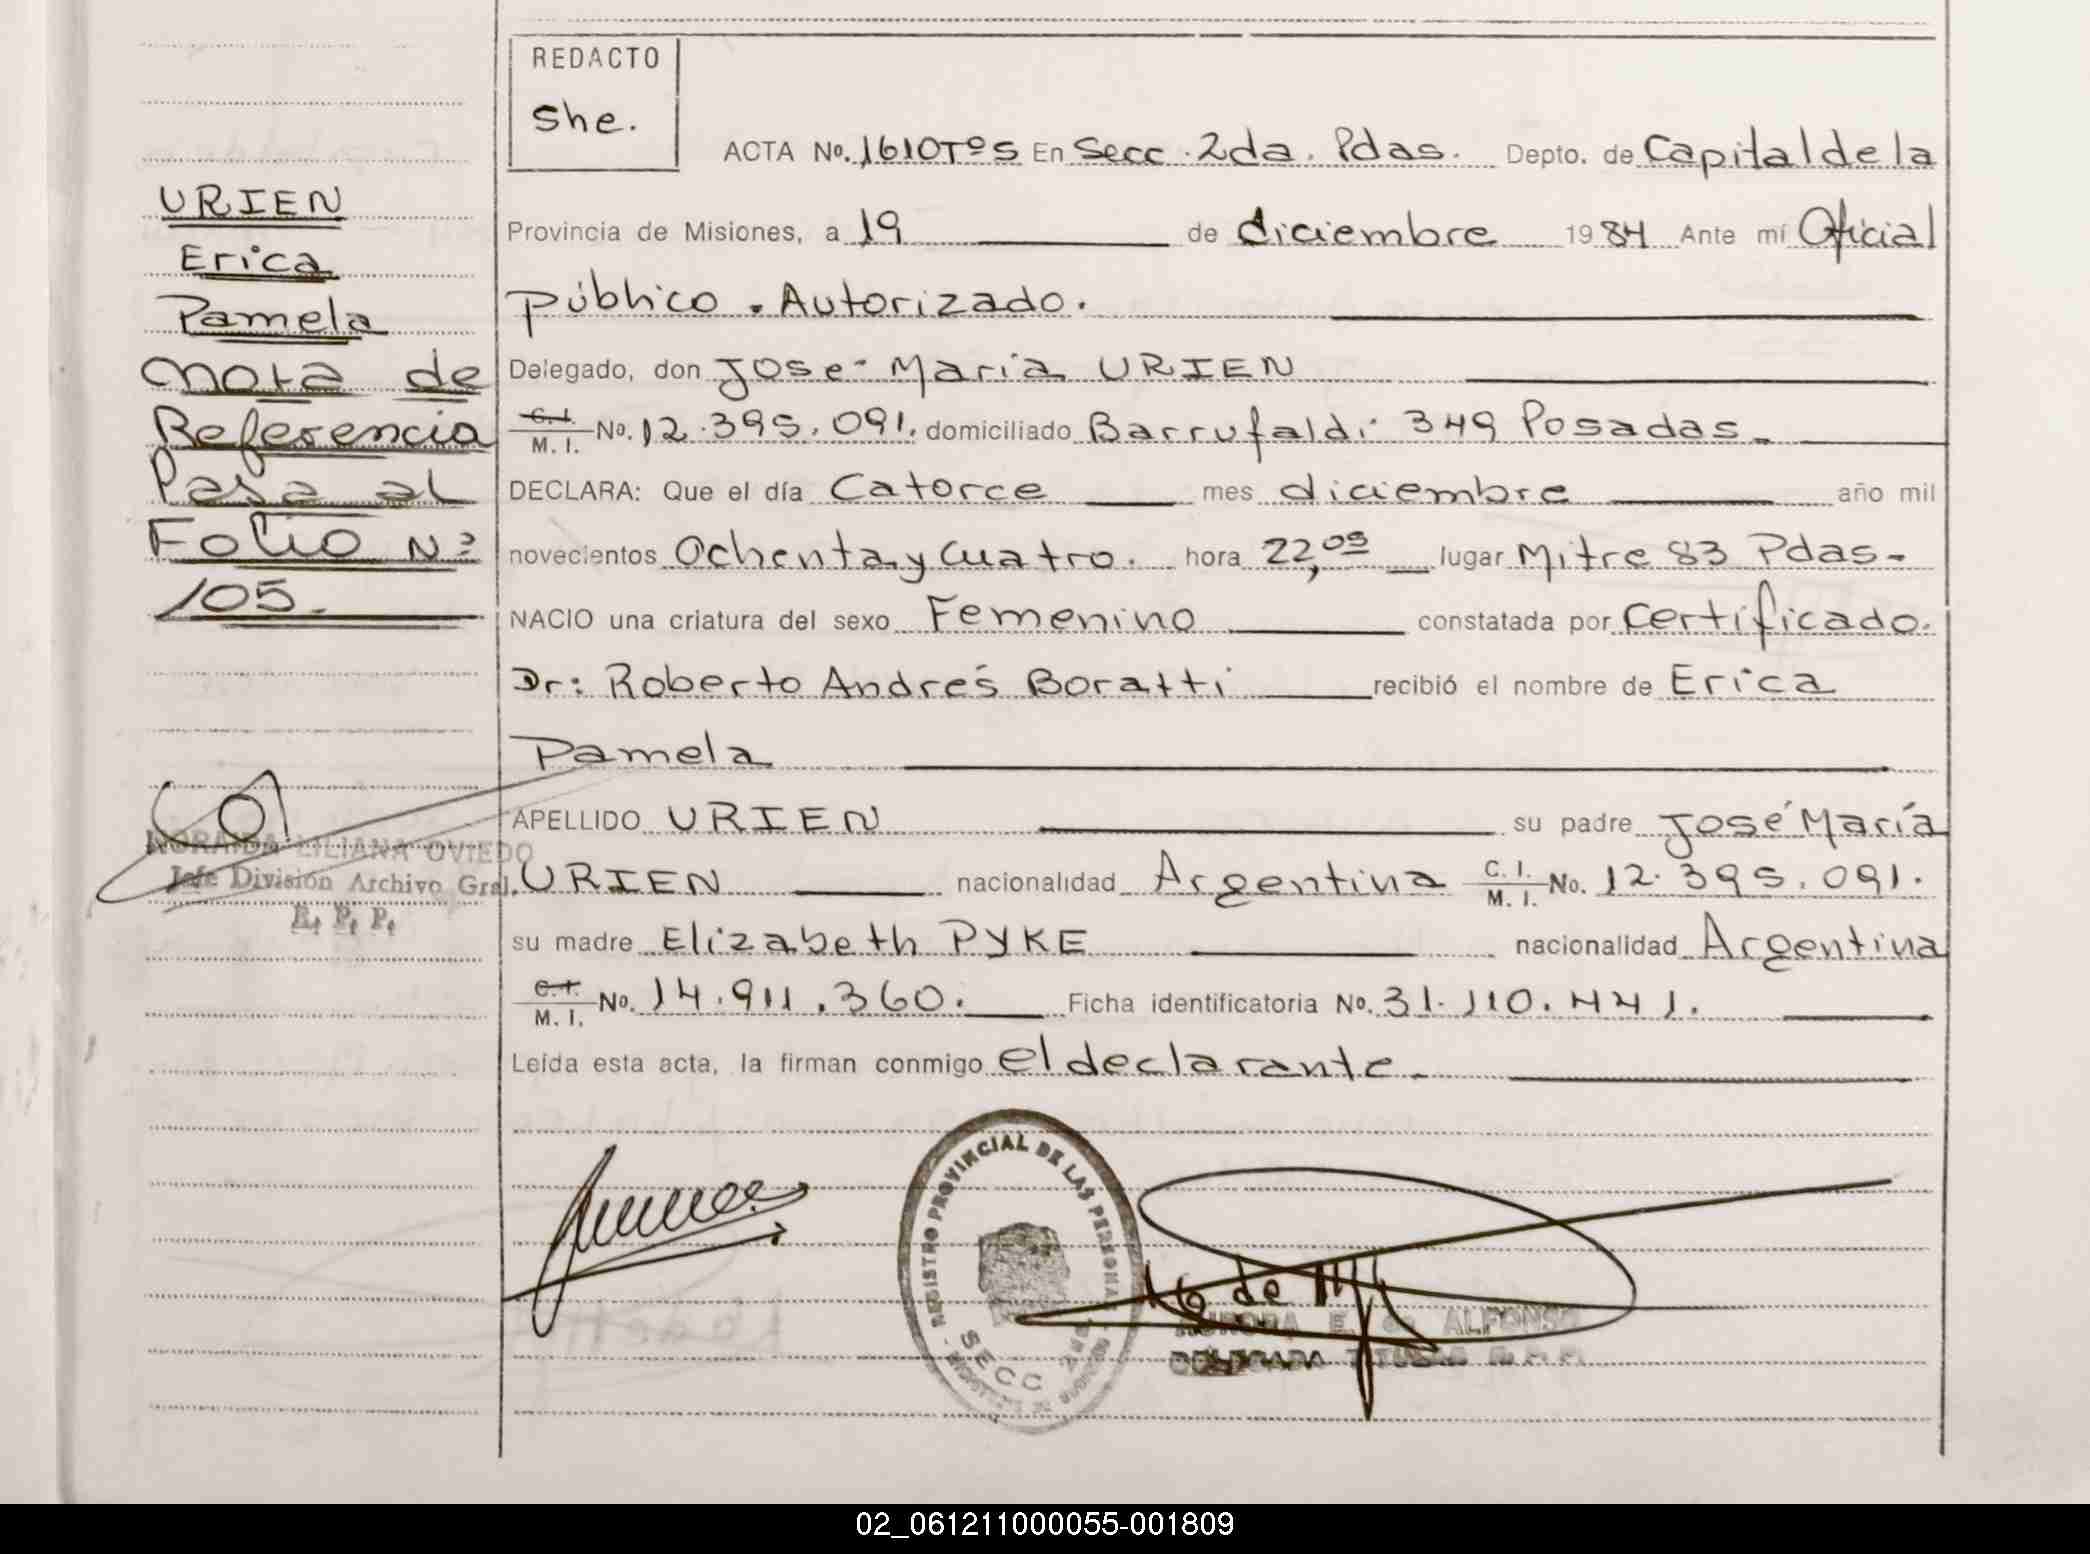 REDACTO
She.
ACTA No. 1610 Tº 5 En Secc. 2da. Pdas. Depto. de Capital de la
URIEN
Provincia de Misiones, a 19 de diciembre 1984 Ante mí Oficial
Erica
Público. Autorizado.
Pamela
Nota de
Delegado, don Jose Maria URIEN
Referencia
C.I. M. I. No. 12.395.091. domiciliado Barrufaldi 349 Posadas.
Pasa al
DECLARA: Que el día Catorce mes diciembre año mil
Folio Nº
novecientos Ochenta y Cuatro. hora 22,05 lugar Mitre 83 Pdas.
105.
NACIO una criatura del sexo Femenino constatada por Certificado.
Dr: Roberto Andrés Boratti recibió el nombre de Erica
Pamela
APELLIDO URIEN su padre José María
NORAIDA LILIANA OVIEDO
Jefe División Archivo Gral.
R. P. P.
URIEN nacionalidad Argentina C. I. M. I. No. 12.395.091.
su madre Elizabeth PYKE nacionalidad Argentina
C.I. M. I. No. 14.911.360. Ficha identificatoria No. 31.110.441.
Leída esta acta, la firman conmigo el declarante.
REGISTRO PROVINCIAL DE LAS PERSONAS
SECC
AURORA E. de ALFONSO
DELEGADA TITULAR R.P.P.
02_061211000055-001809